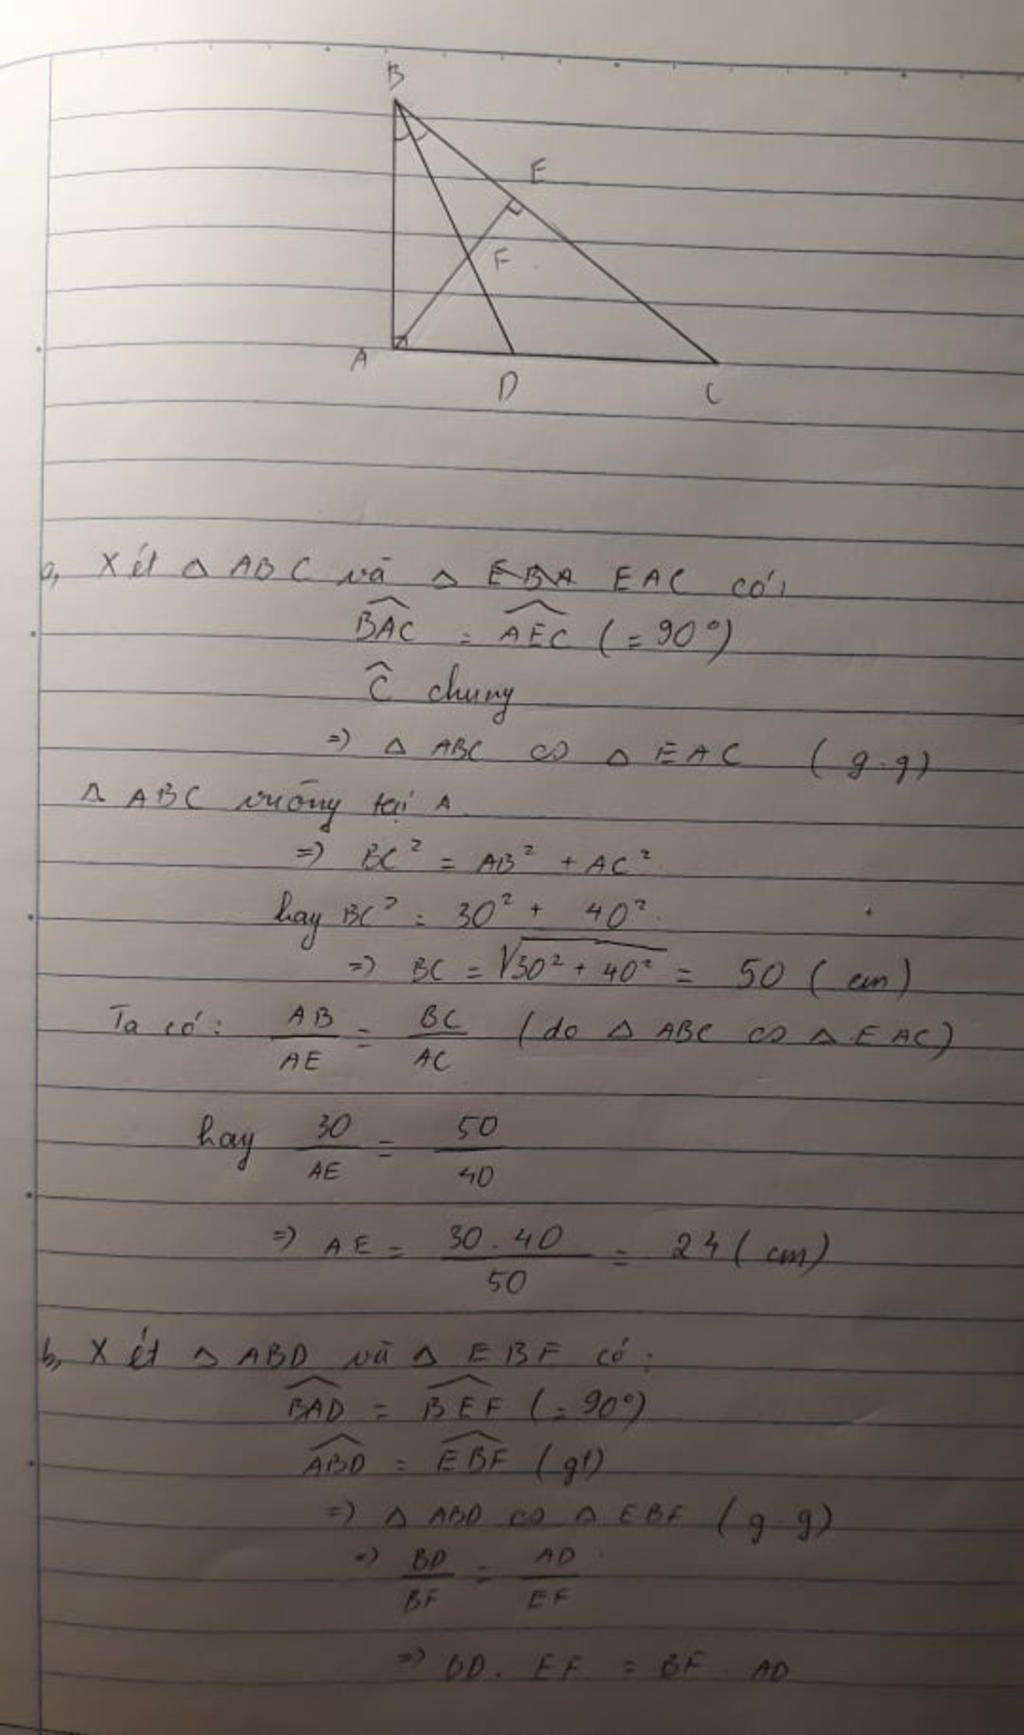 B
E
F
A
D
C
a, Xét Δ ABC và Δ EBA EAC có:
$\widehat{BAC}$ = $\widehat{AEC}$ (= 90°)
$\widehat{C}$ chung
=> Δ ABC ∽ Δ EAC (g.g)
Δ ABC vuông tại A.
=> BC² = AB² + AC².
hay BC² = 30² + 40².
=> BC = √(30² + 40²) = 50 (cm)
Ta có: AB/AE = BC/AC (do Δ ABC ∽ Δ EAC)
hay 30/AE = 50/40
=> AE = 30.40/50 = 24 (cm)
b, Xét Δ ABD và Δ EBF có:
$\widehat{BAD}$ = $\widehat{BEF}$ (= 90°)
$\widehat{ABD}$ = $\widehat{EBF}$ (gt)
=> Δ ABD ∽ Δ EBF (g.g)
=> BD/BF = AD/EF
=> BD. EF = BF. AD